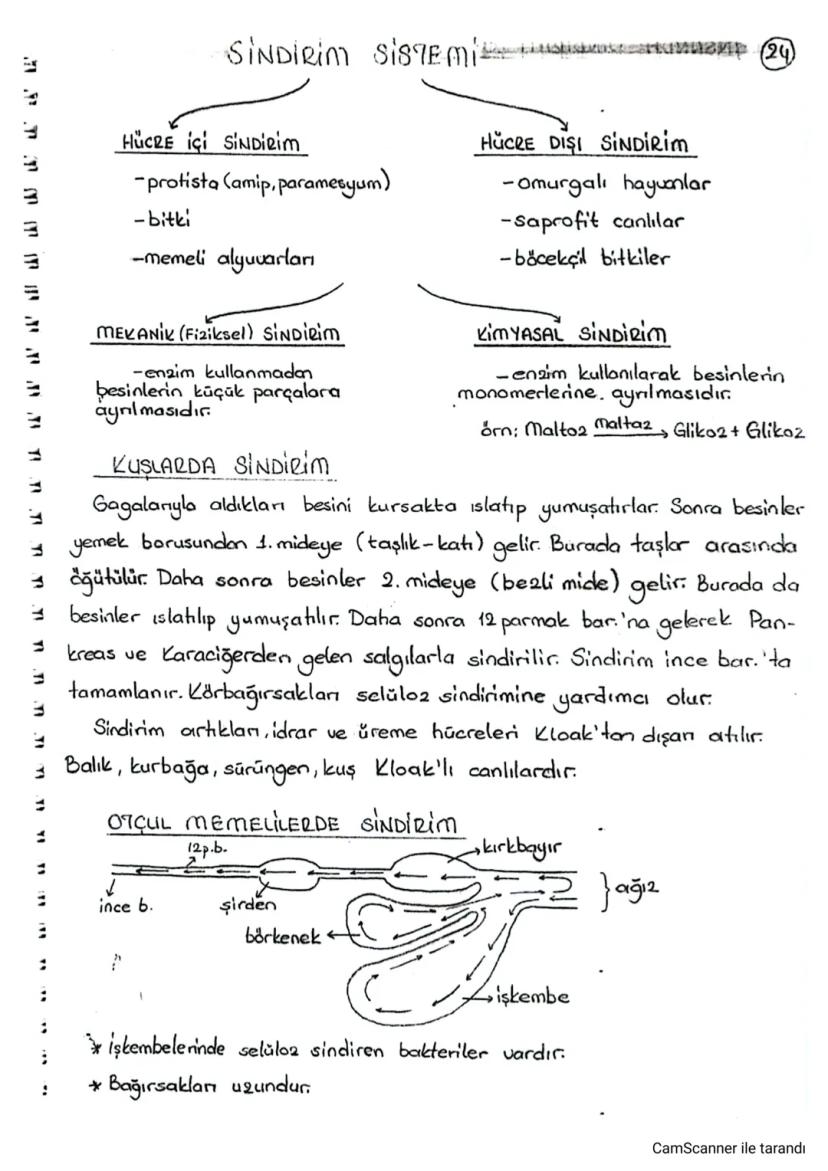 SİNDİRİM SİSTEMİ
24
HÜCRE İÇİ SİNDİRİM
-protista (amip, paramesyum)
-bitki
-memeli alyuvarları
HÜCRE DIŞI SİNDİRİM
-omurgalı hayvanlar
-saprofit canlılar
-böcekçil bitkiler
MEKANİK (Fiziksel) SİNDİRİM
-enzim kullanmadan
besinlerin küçük parçalara
ayrılmasıdır.
KİMYASAL SİNDİRİM
-enzim kullanılarak besinlerin
monomerlerine ayrılmasıdır.
örn; Maltoz Maltaz → Glikoz + Glikoz
KUŞLARDA SİNDİRİM
Gagalarıyla aldıkları besini kursakta ıslatıp yumuşatırlar. Sonra besinler
yemek borusundan 1. mideye (taşlık-katı) gelir. Burada taşlar arasında
öğütülür. Daha sonra besinler 2. mideye (bezli mide) gelir. Burada da
besinler ıslatılıp yumuşatılır. Daha sonra 12 parmak bar.'na gelerek Pan-
kreas ve Karaciğerden gelen salgılarla sindirilir. Sindirim ince bar.'ta
tamamlanır. Körbağırsakları selüloz sindirimine yardımcı olur.
Sindirim artıkları, idrar ve üreme hücreleri Kloak'tan dışarı atılır.
Balık, kurbağa, sürüngen, kuş Kloak'lı canlılardır.
OTÇUL MEMELİLERDE SİNDİRİM
12p.b.
kırkbayır
ağız
ince b.
şirden
börkenek
işkembe
* İşkembelerinde selüloz sindiren bakteriler vardır.
* Bağırsakları uzundur.
CamScanner ile tarandı